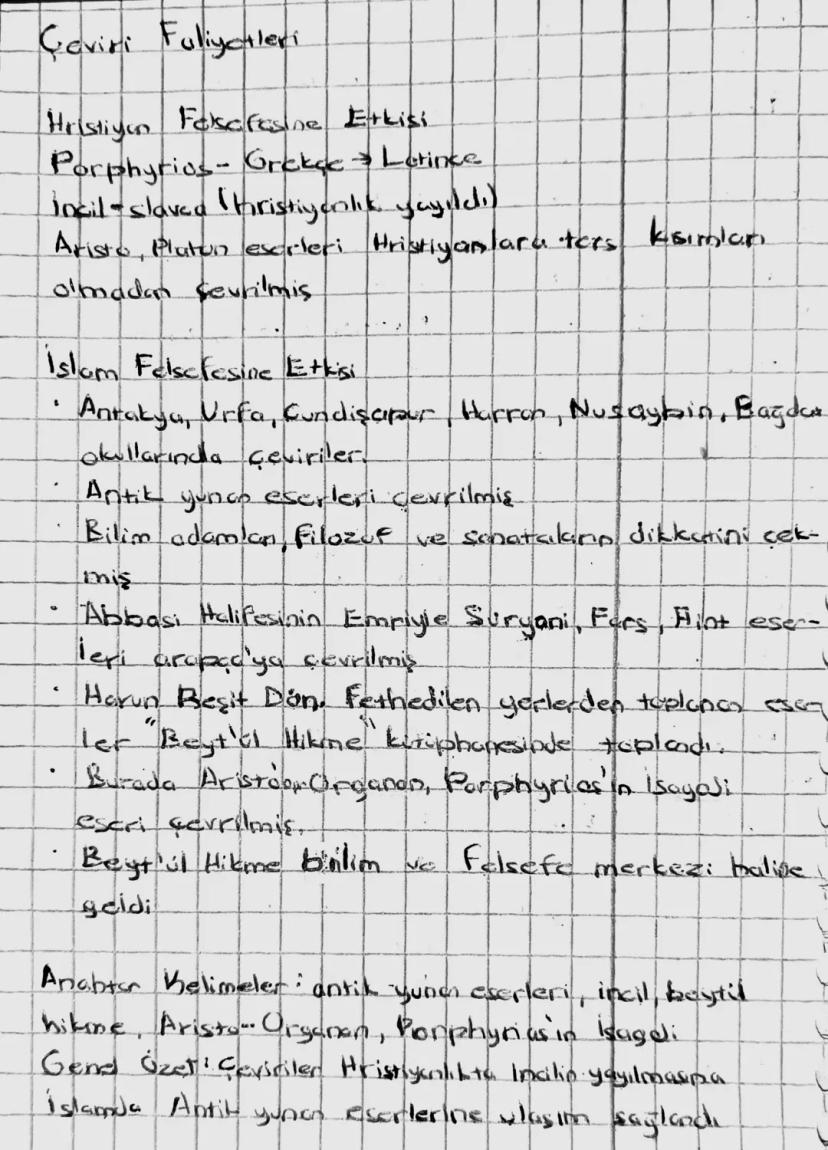 Çeviri Faliyetleri
Hristiyan Felsefesine Etkisi
Porphyrios - Grekçe → Latince
İncil → slavca (hristiyanlık yayıldı)
Aristo, Platon eserleri Hristiyanlara ters kısımları
olmadan çevrilmiş
İslam Felsefesine Etkisi
· Antakya, Urfa, Cundişapur, Harran, Nusaybin, Bağdat
okullarında çeviriler.
· Antik yunan eserleri çevrilmiş
· Bilim adamları, filozof ve sanatçıların dikkatini çek-
miş
· Abbasi Halifesinin Emriyle Süryani, Fars, Hint eser-
leri arapça'ya çevrilmiş
· Harun Reşit Dön. fethedilen yerlerden toplanan eser-
ler "Beyt'ül Hikme" kütüphanesinde toplandı.
· Burada Aristo'nun Organon, Porphyrios'ın İsagoji
eseri çevrilmiş.
· Beyt'ül Hikme bilim ve Felsefe merkezi haline
geldi
Anahtar Kelimeler: antik yunan eserleri, incil, beytül
hikme, Aristo-Organon, Porphyrios'ın İsagoji
Genel Özet: Çeviriler Hristiyanlıkta İncilin yayılmasına
İslamda Antik yunan eserlerine ulaşım sağlandı